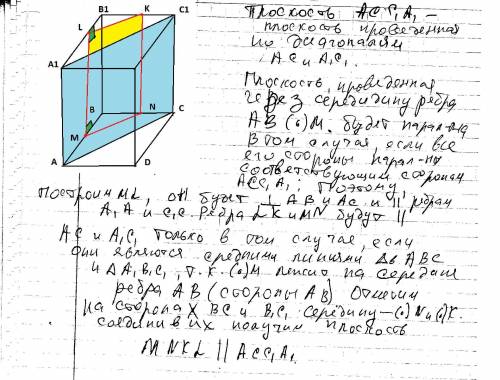 B1
K
C1
L
A1
B
N
C
M
A
D
Плоскость ACC₁A₁ –
плоскость проведенная
по диагоналям
AC и A₁C₁.
Плоскость, проведенная
через середину ребра
AB (·) M. будет парал-на
в том случая, если все
его стороны парал-ны
соответствующим сторонам
ACC₁A₁; Поэтому
Построим ML, он будет ⊥ AB и AC и || ребрам
A₁A и C₁C. Ребра LK и MN будут ||
AC и A₁C₁ только в том случае, если
они являются средними линиями Δв ABC
и Δ A₁B₁C₁, т.к. (·) M лежит на середине
ребра AB (стороны AB) Отметим
на сторонах BC и B₁C₁ середину – (·) N и (·) K.
соединив их получим плоскость
MNKL || ACC₁A₁